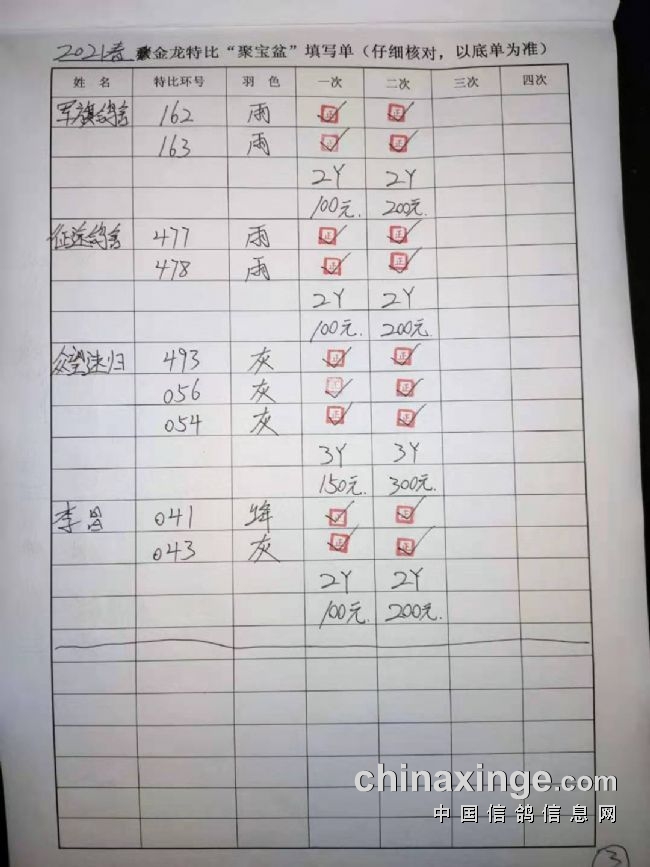 2021春 金龙特比“聚宝盆”填写单（仔细核对，以底单为准）
姓 名 特比环号 羽 色 一次 二次 三次 四次
军旗鸽舍 162 雨 正 正
163 雨 正 正
2Y 2Y
100元. 200元.
征途鸽舍 477 雨 正 正
478 雨 正 正
2Y 2Y
100元. 200元.
众望速归 493 灰 正 正
056 灰 正
054 灰 正 正
3Y 3Y
150元. 300元.
李 041 绛 正
043 灰 正 正
2Y 2Y
100元. 200元.
chinaxinge.com
中国信鸽信息网
3